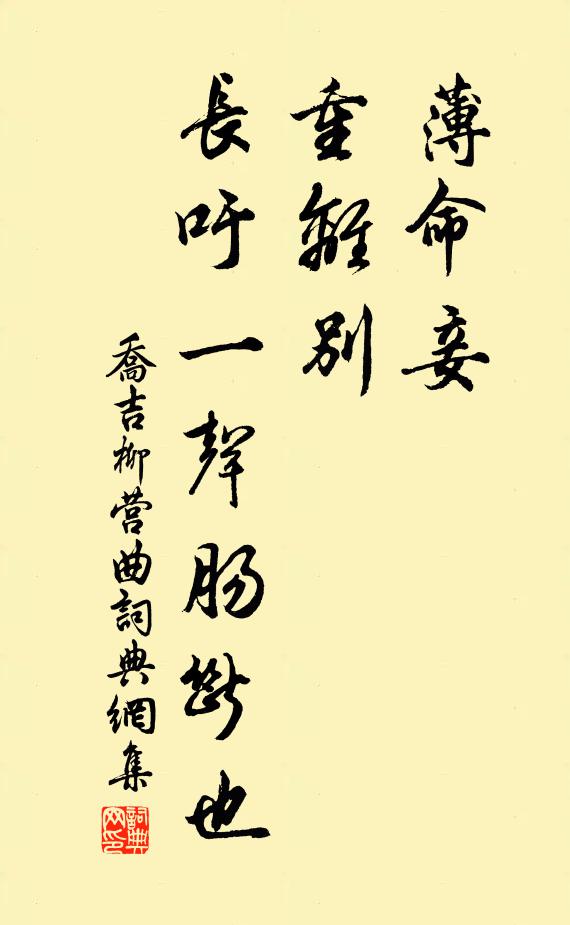 薄命妾
重離別
長吁一聲肠斷也
喬吉柳营曲詞典網集
詞典
网印